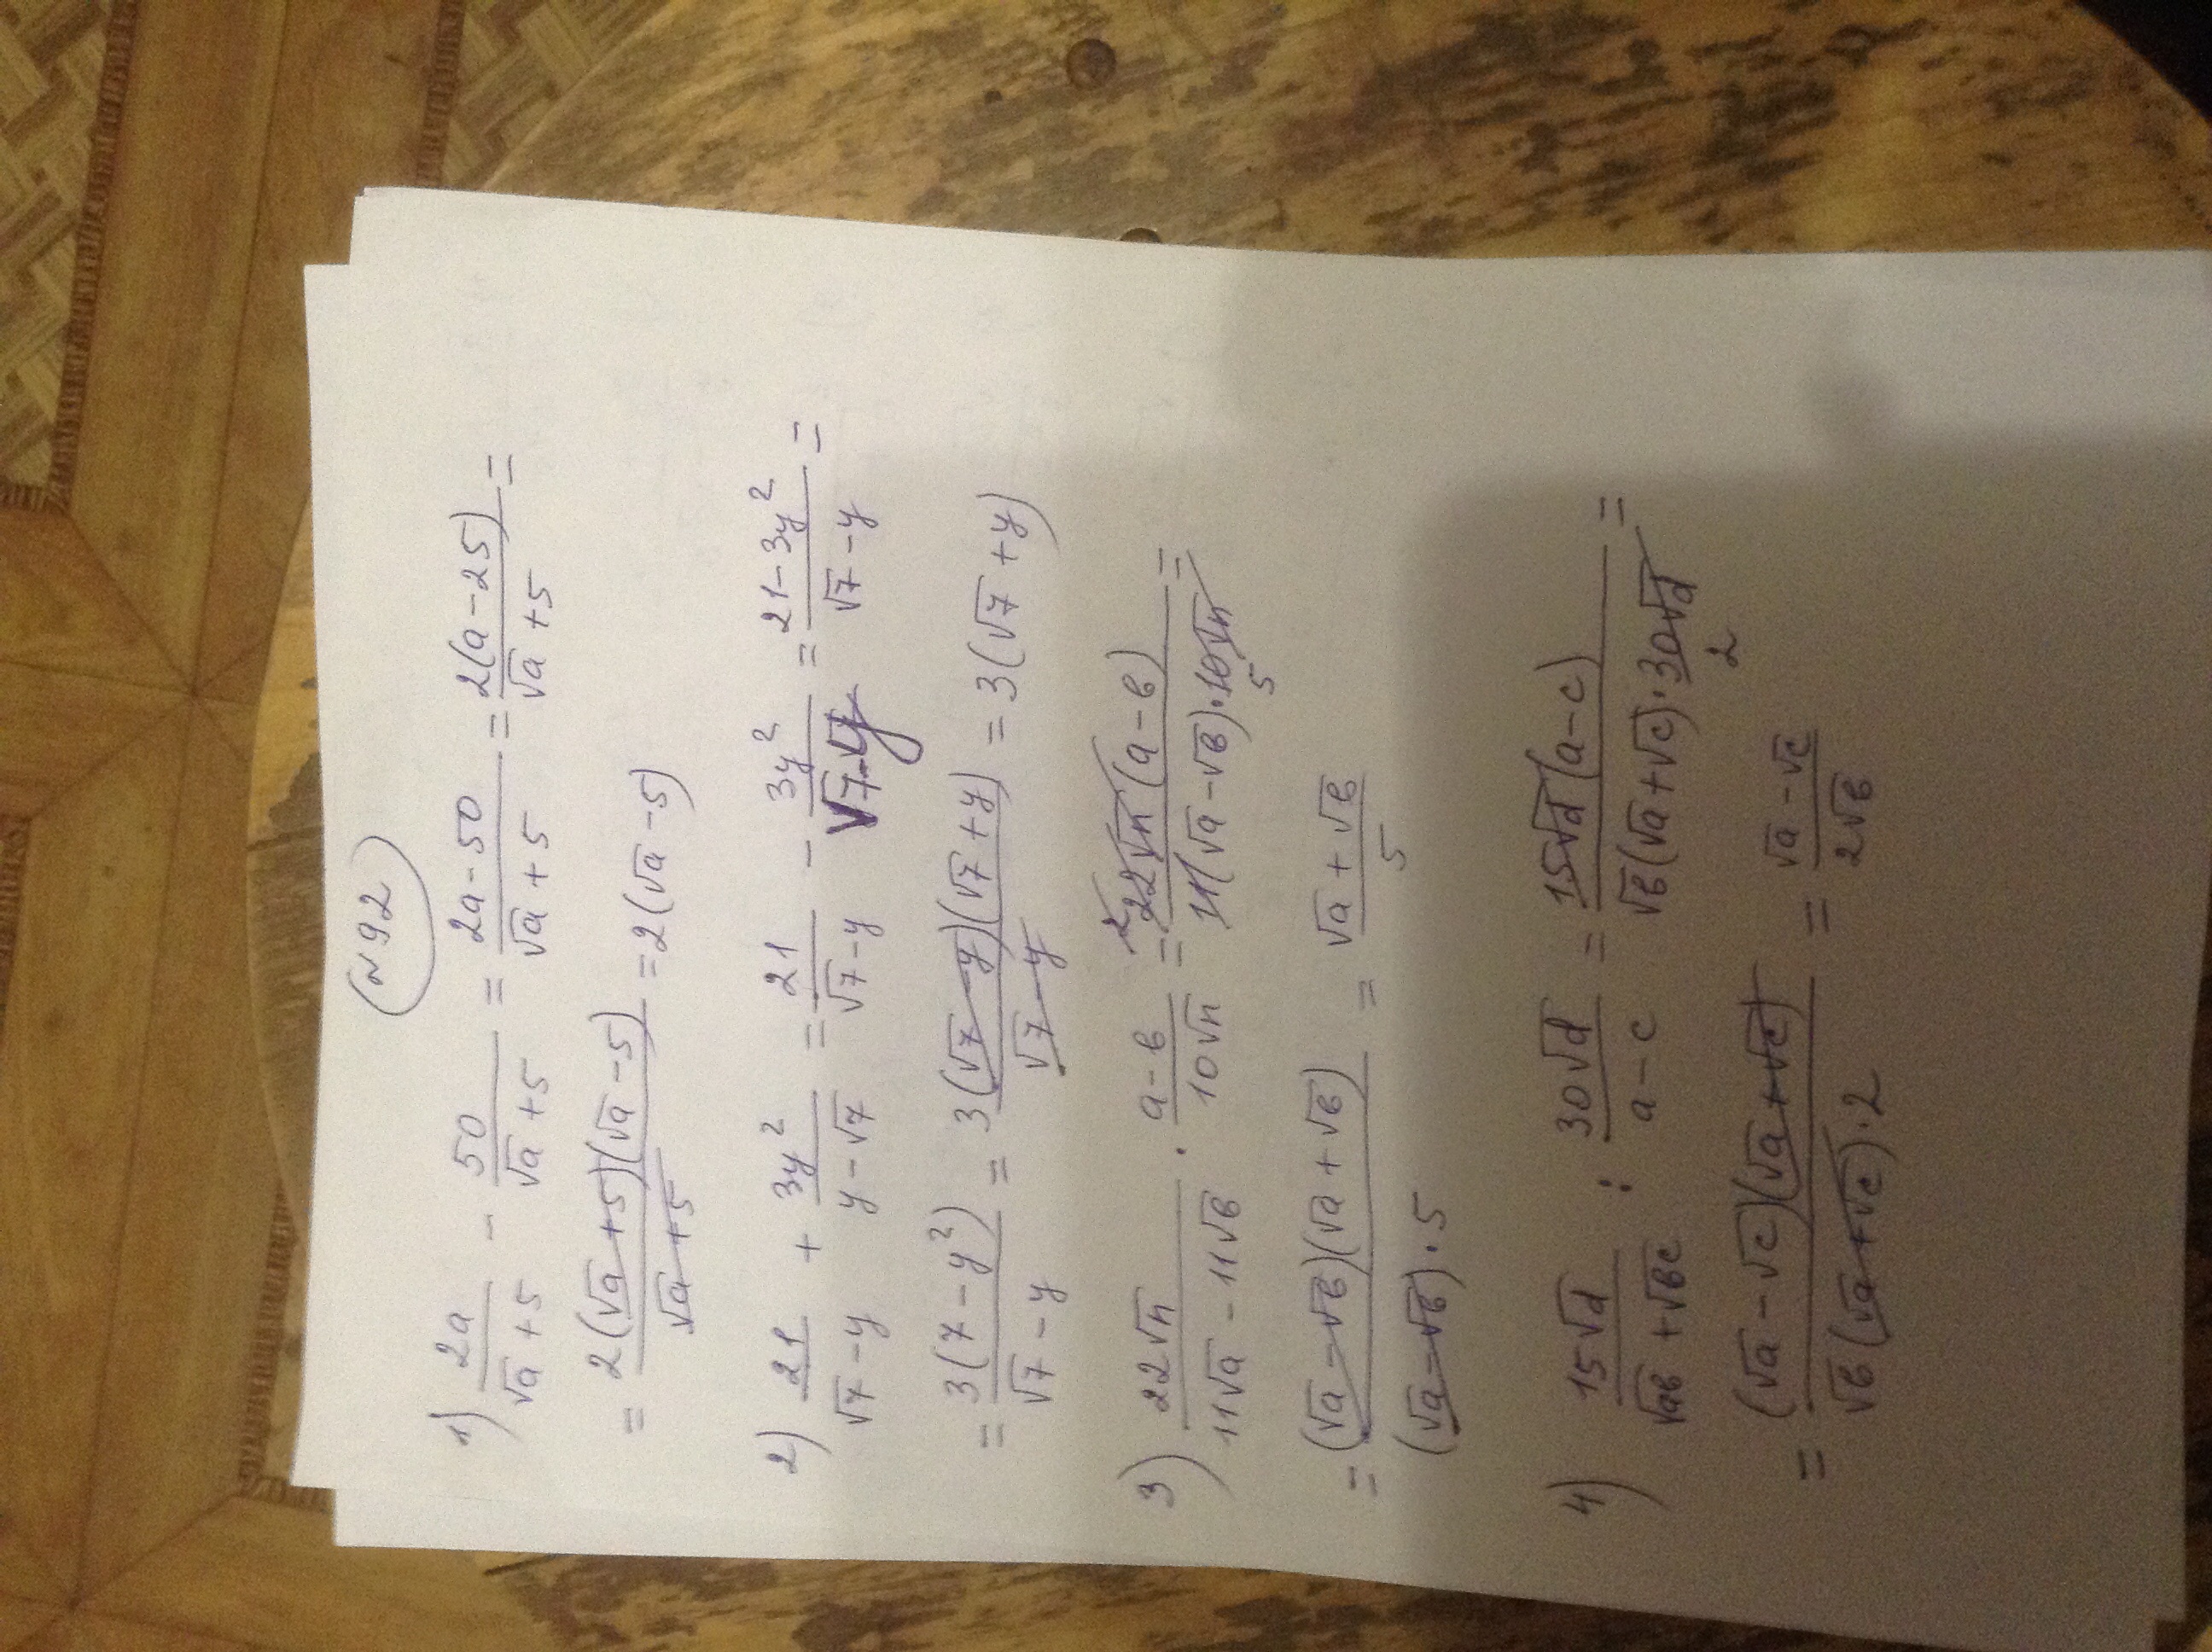 N92
1) 2a/(√a + 5) − 50/(√a + 5) = (2a − 50)/(√a + 5) = 2(a − 25)/(√a + 5) =
= 2(√a + 5)(√a − 5)/(√a + 5) = 2(√a − 5)
2) 21/(√7 − y) + 3y²/(y − √7) = 21/(√7 − y) − 3y²/(√7 − y) = (21 − 3y²)/(√7 − y) =
= 3(7 − y²)/(√7 − y) = 3(√7 − y)(√7 + y)/(√7 − y) = 3(√7 + y)
3) 22√n/(11√a − 11√в) · (a − в)/(10√n) = 2 22√n(a − в)/(11(√a − √в) · 10√n) 5 =
= (√a − √в)(√a + √в)/((√a − √в) · 5) = (√a + √в)/5
4) 15√d/(√aв + √вc) : 30√d/(a − c) = 15√d(a − c)/(√в(√a + √c) · 30√d) 2 =
= (√a − √c)(√a + √c)/(√в(√a + √c) · 2) = (√a − √c)/(2√в)